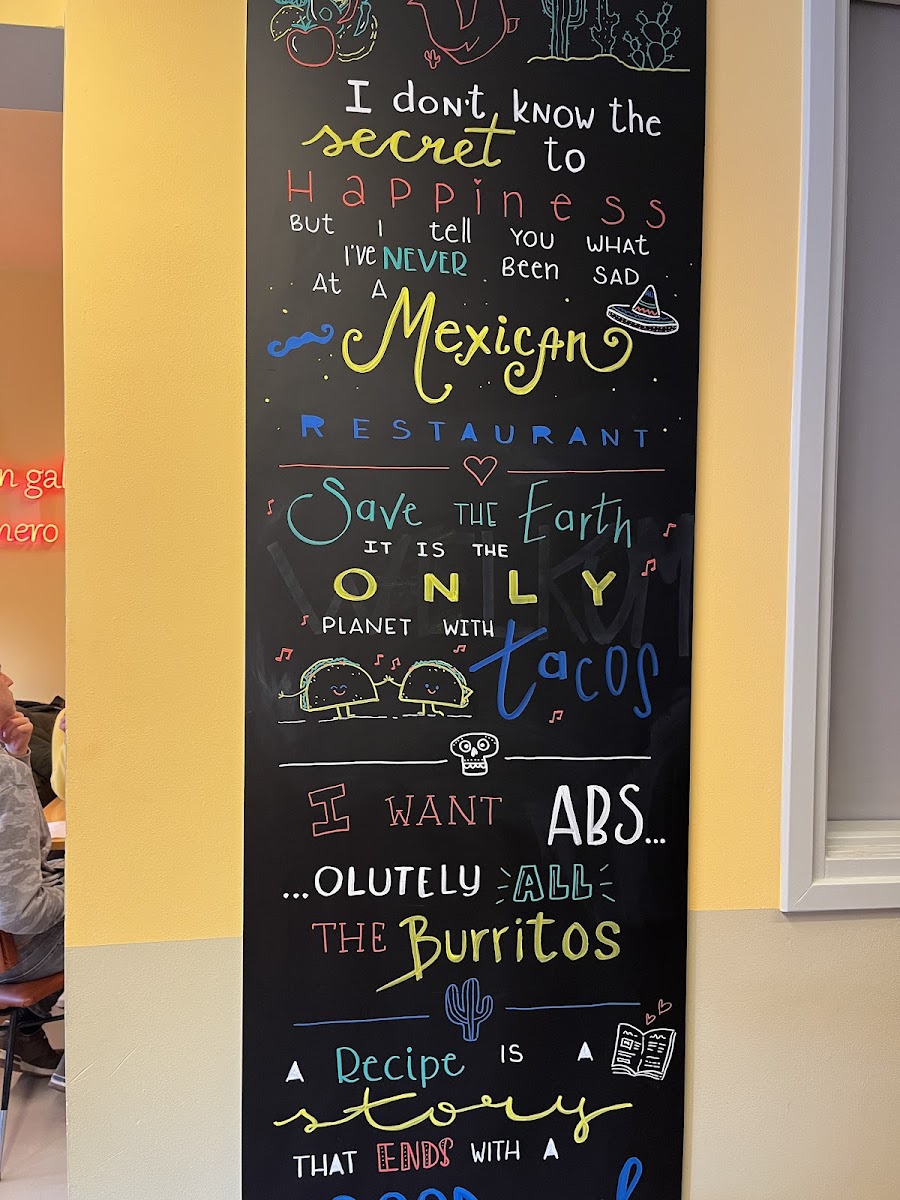 I don't know the
secret to
Happiness
But I tell you what
I've NEVER Been SAD
At A
Mexican
RESTAURANT
Save THE Earth
IT IS THE
ONLY
PLANET WITH
tacos
I WANT ABS...
...OLUTELY ALL
THE Burritos
A Recipe IS A
story
THAT ENDS WITH A
n gal
hero